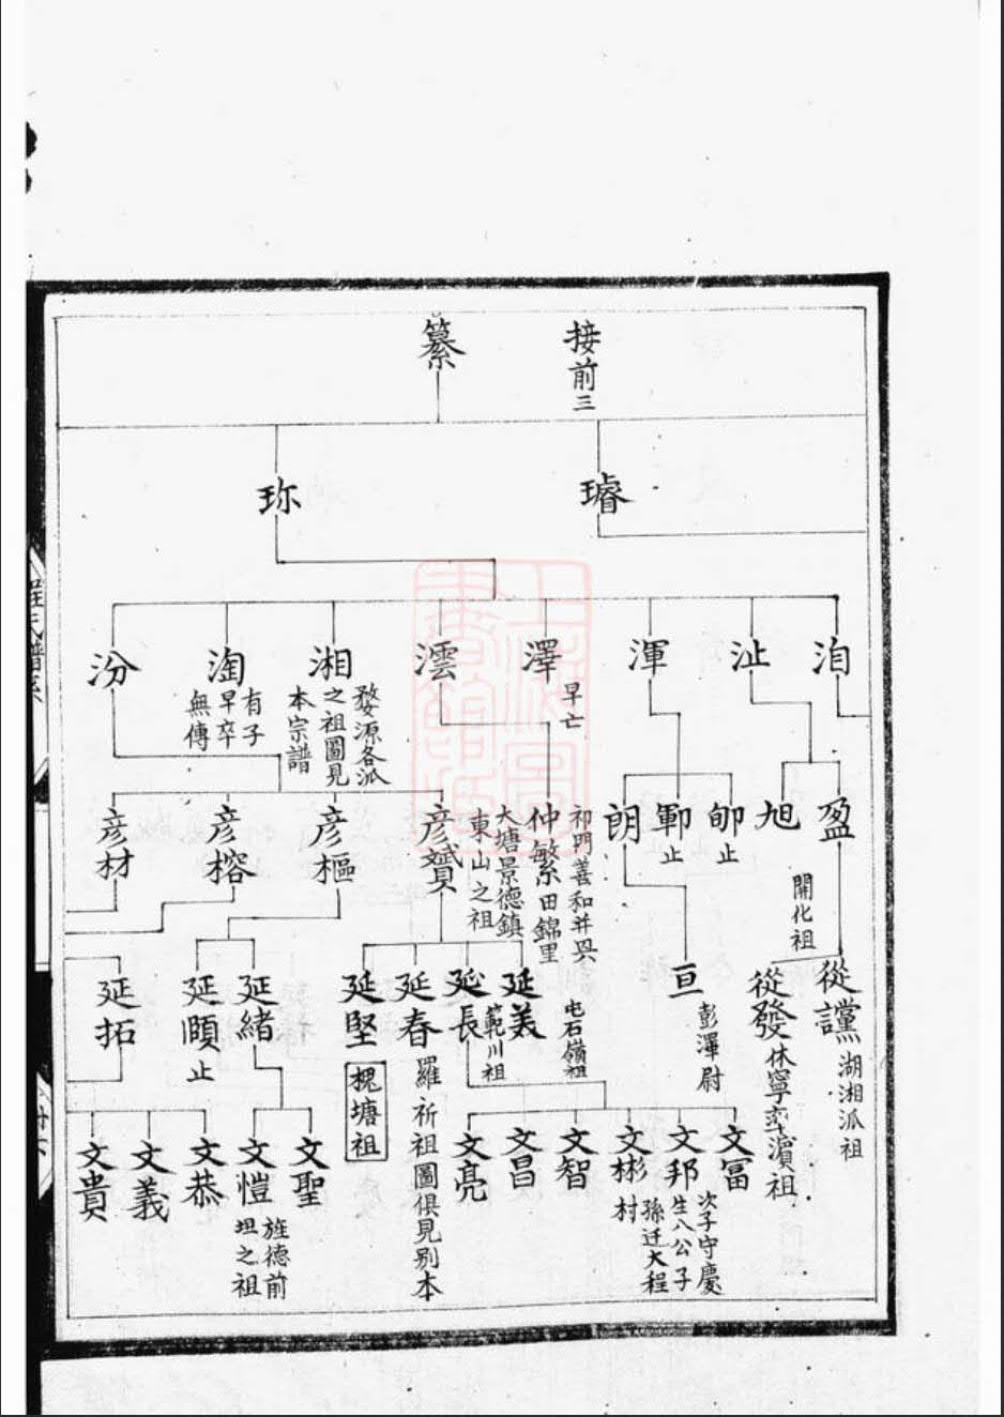 接前三
纂
璿
珎
洎
沚
渾
澤
早亡
澐
湘
婺源各派
之祖圖見
本宗譜
淘
有子
早卒
無傳
汾
盈
旭
郇
止
鄆
止
朗
仲繁
祁門善和并吳
田錦里
大塘景德鎮
東山之祖
彦贇
彦樞
彦榕
彦材
從讜
湖湘派祖
開化祖
從發
休寧
濵祖
亘
彭澤尉
延美
屯石嶺祖
延長
範川祖
延春
羅祈祖圖俱見别本
延堅
槐塘祖
延緒
延頤
止
延拓
文富
文邦
次子守慶
生八公子
孫迁大程
村
文彬
文智
文昌
文亮
文聖
文愷
旌德前
坦之祖
文恭
文義
文貴
程氏譜系